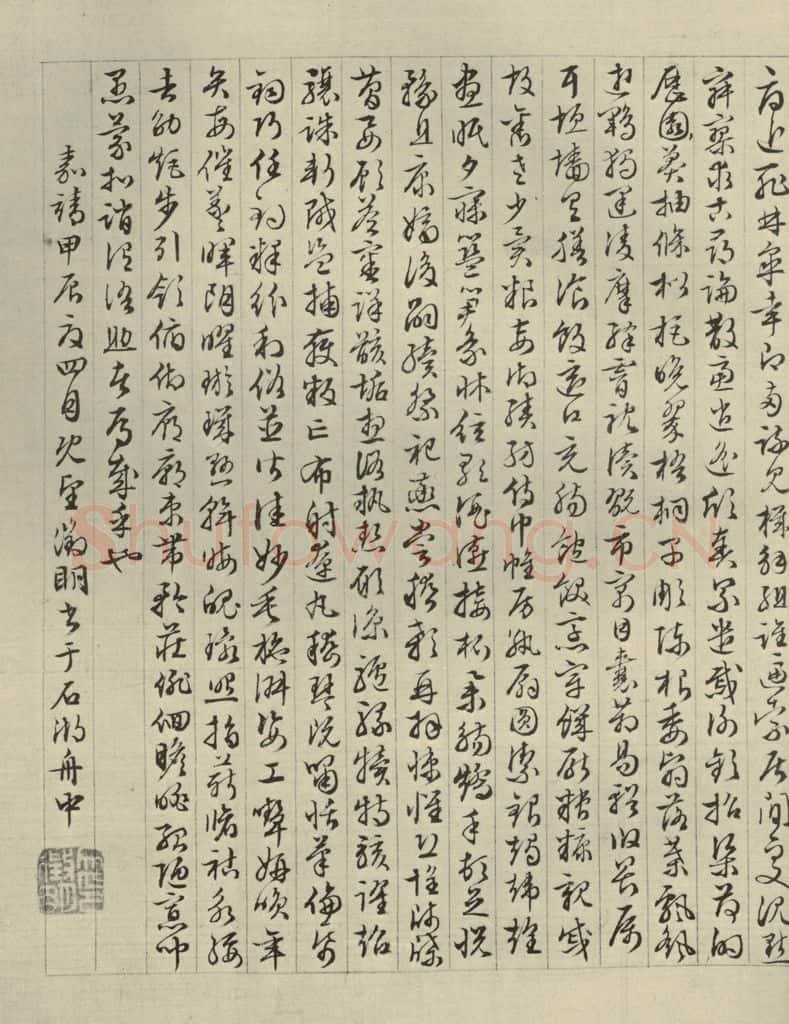 辱近恥林皋幸即兩疏見機解組誰逼索居閒處沉默
寂寥求古尋論散慮逍遙欣奏累遣慼謝歡招渠荷的
歷園莽抽條枇杷晚翠梧桐早凋陳根委翳落葉飄颻
遊鵾獨運凌摩絳霄耽讀翫市寓目囊箱易輶攸畏屬
耳垣墻具膳飡飯適口充腸飽飫烹宰飢厭糟糠親戚
故舊老少異糧妾御績紡侍巾帷房紈扇圓潔銀燭煒煌
晝眠夕寐籃筍象床弦歌酒讌接杯舉觴矯手頓足悅
豫且康嫡後嗣續祭祀蒸嘗稽顙再拜悚懼恐惶牋牒
簡要顧答審詳骸垢想浴執熱願涼驢騾犢特駭躍超
驤誅斬賊盜捕獲叛亡布射遼丸嵇琴阮嘯恬筆倫紙
鈞巧任釣釋紛利俗並皆佳妙毛施淑姿工顰妍笑年
矢每催羲暉朗曜璇璣懸斡晦魄環照指薪脩祜永綏
吉劭矩步引領俯仰廊廟束帶矜莊徘徊瞻眺孤陋寡聞
愚蒙等誚謂語助者焉哉乎也
嘉靖甲辰夏四月既望徵明書于石湖舟中
Shufawang.CN